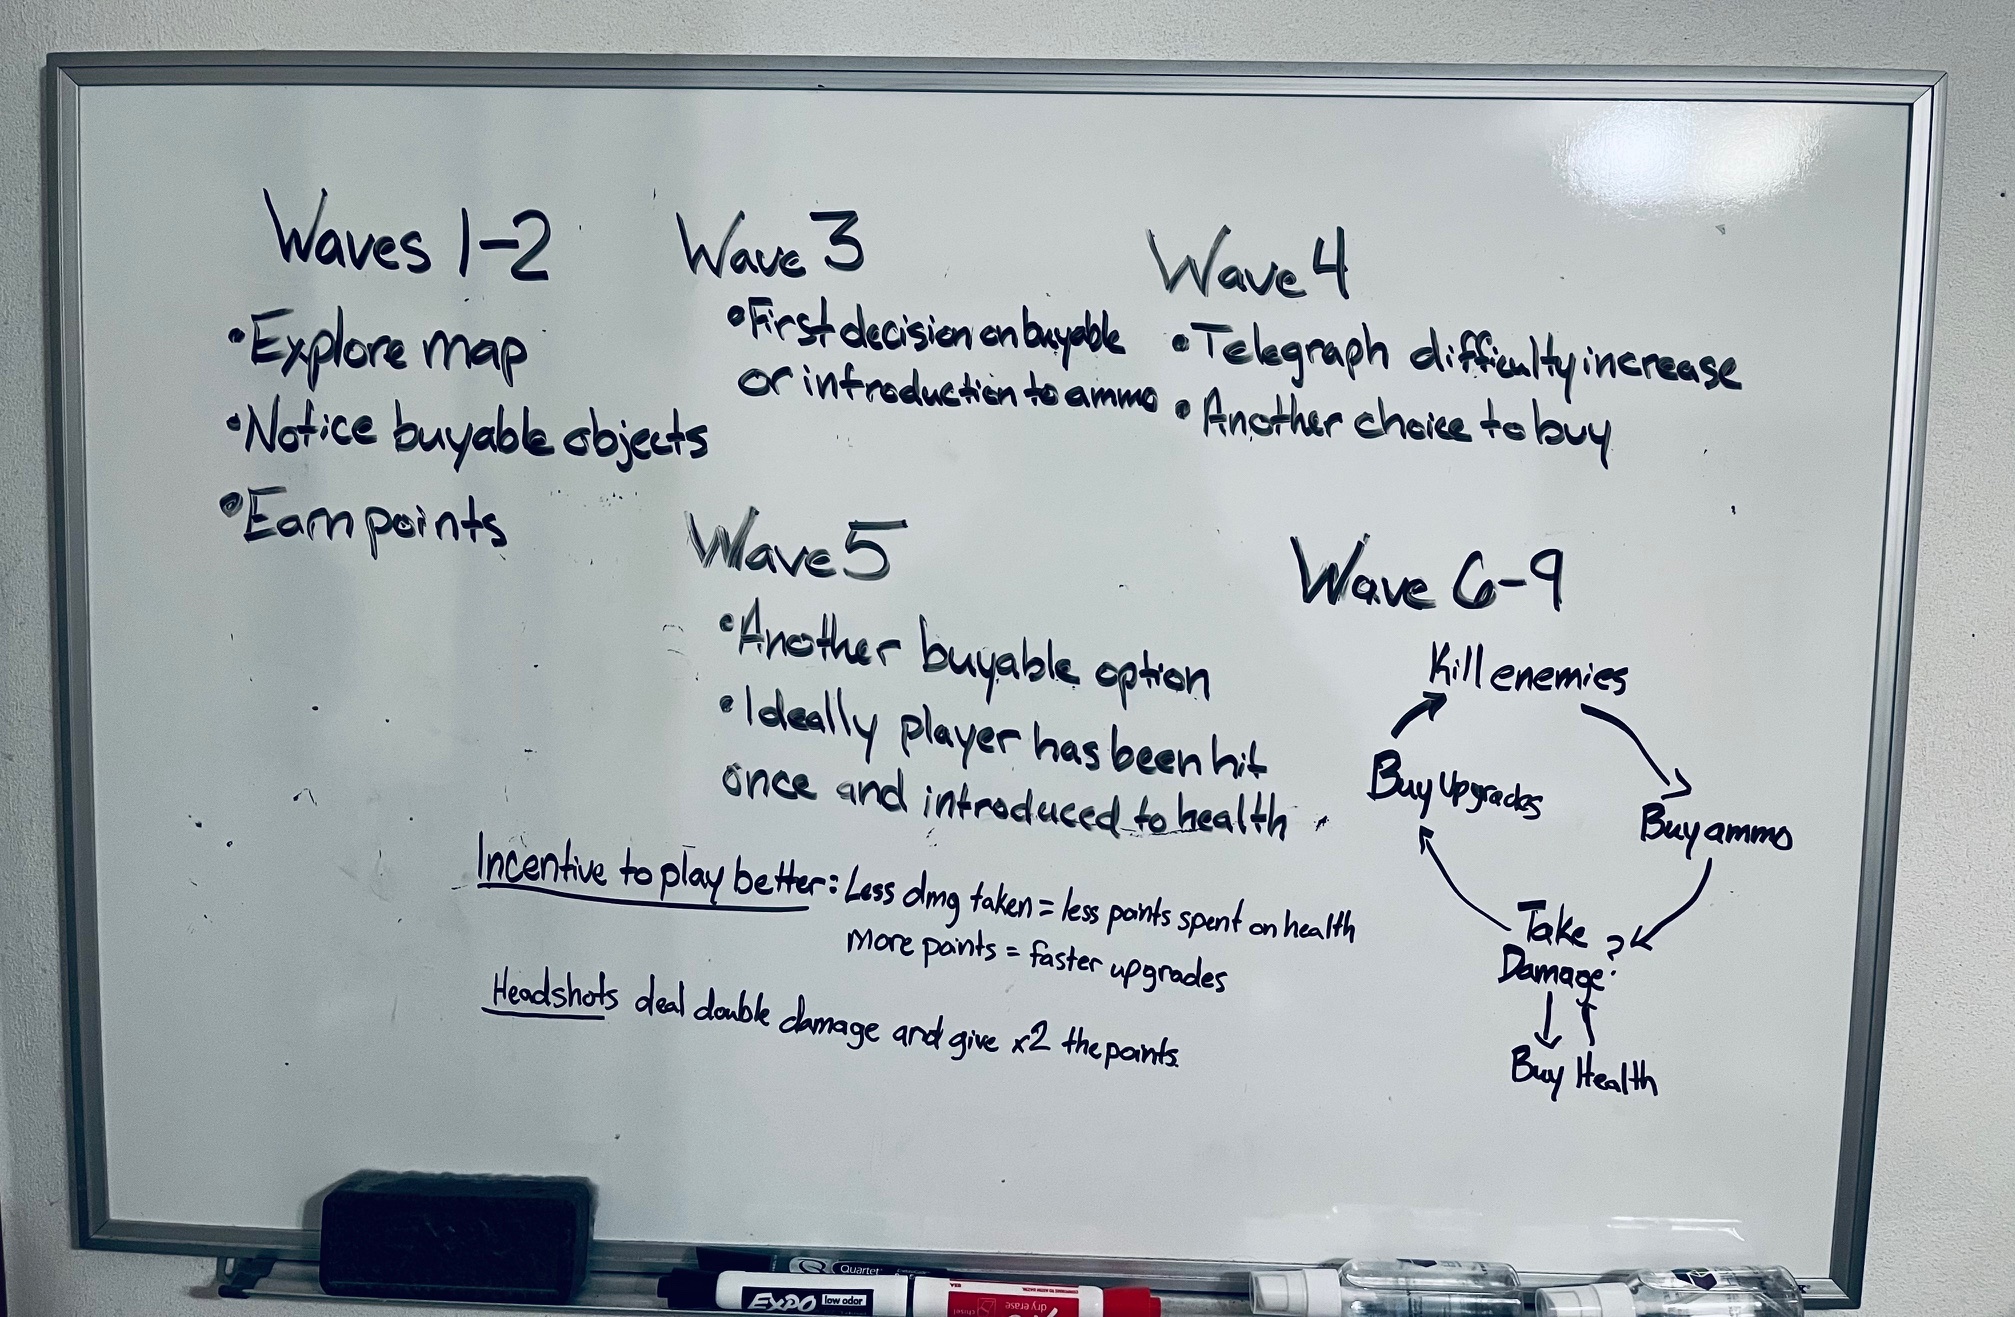 Waves 1-2
•Explore map
•Notice buyable objects
•Earn points
Wave 3
•First decision on buyable
or introduction to ammo
Wave 4
•Telegraph difficulty increase
•Another choice to buy
Wave 5
•Another buyable option
•Ideally player has been hit
once and introduced to health
Wave 6-9
Kill enemies
Buy ammo
Take
Damage?
Buy Health
Buy Upgrades
Incentive to play better: Less dmg taken = less points spent on health
more points = faster upgrades
Headshots deal double damage and give x2 the points.
Quartet
EXPO low odor
dry erase
chisel